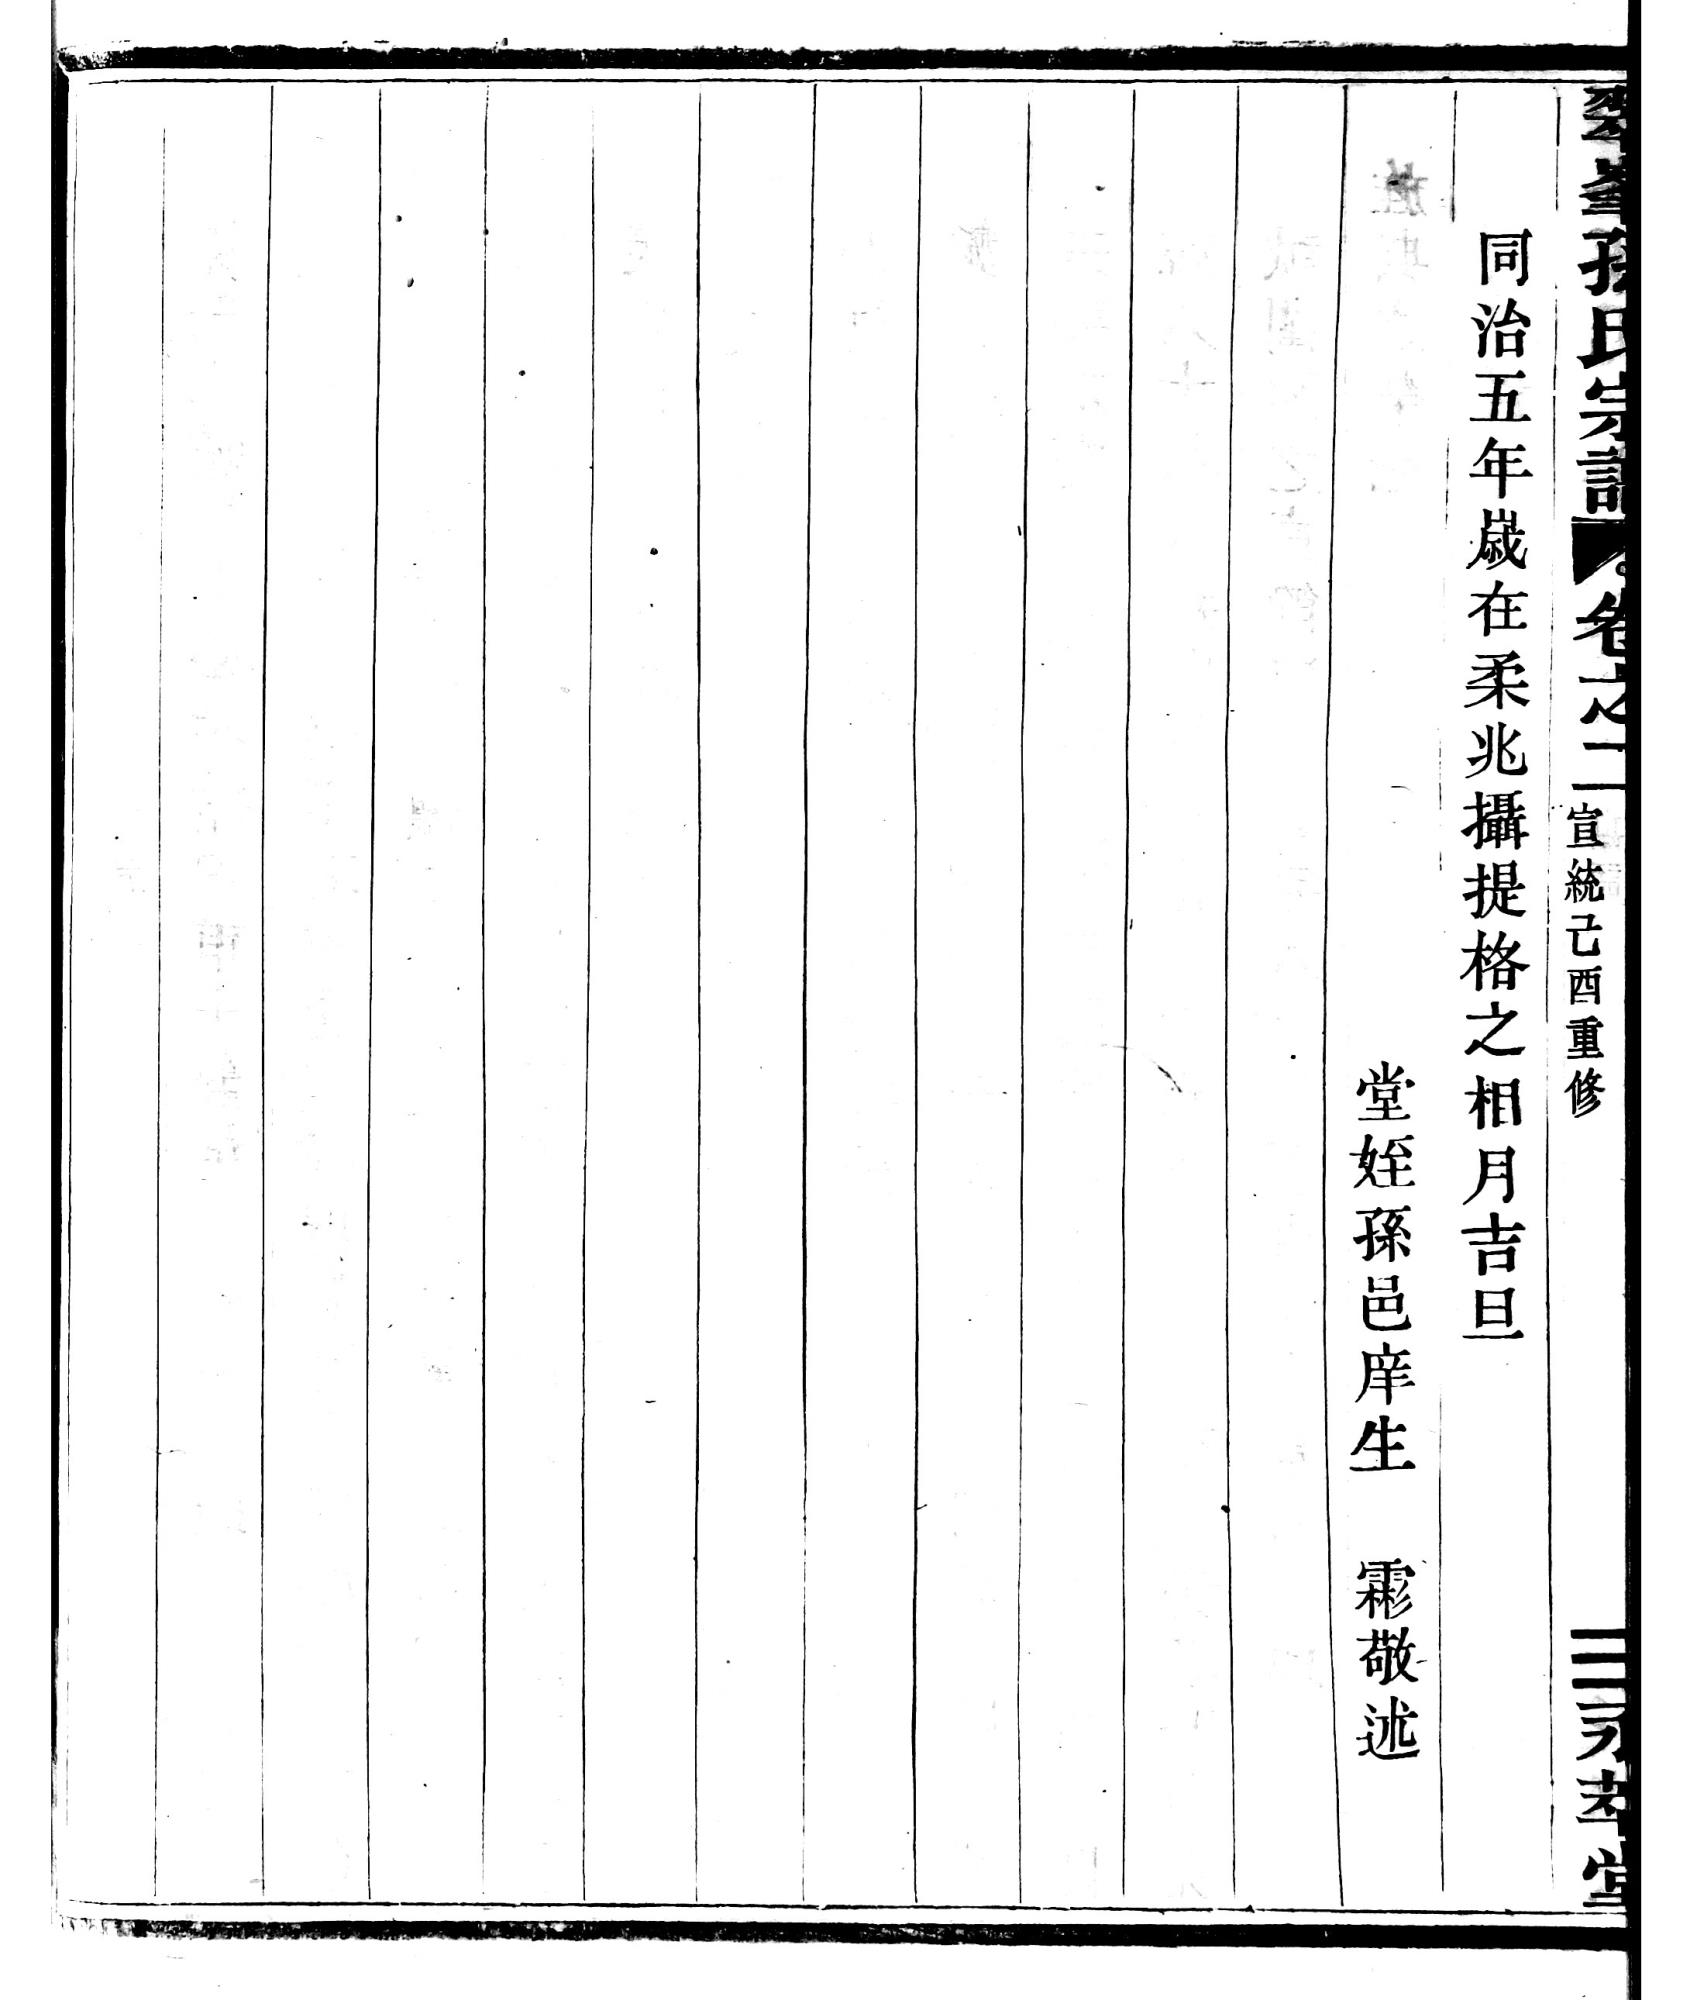 翠峯孫氏宗譜 卷之二 宣統己酉重修 三 永萃堂
同治五年歲在柔兆攝提格之相月吉旦
堂姪孫邑庠生 霦敬述